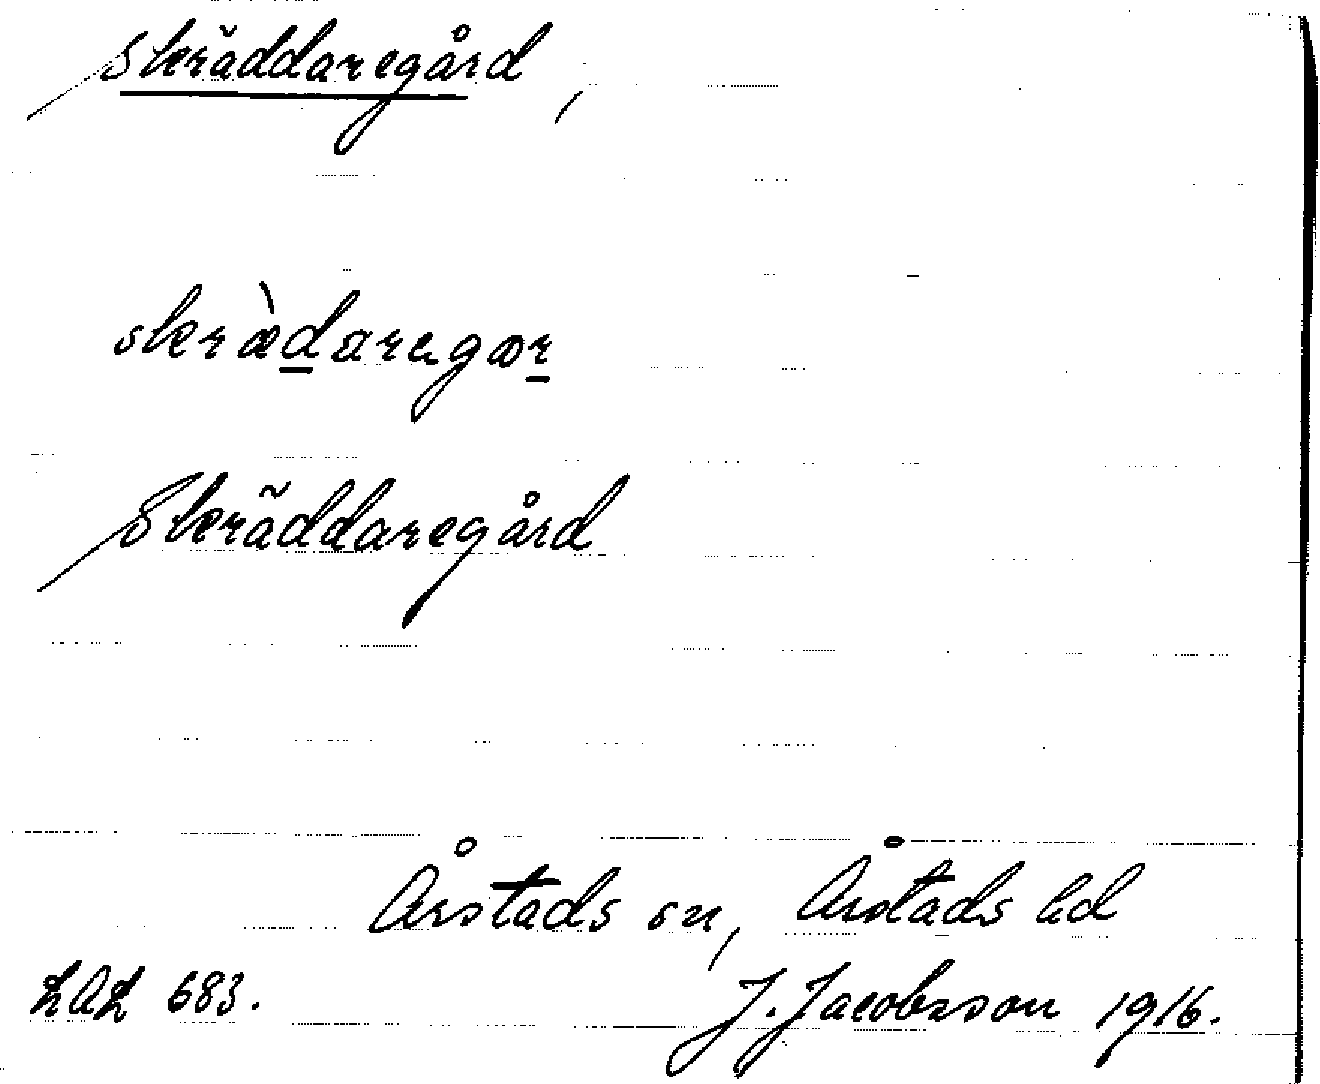 Skräddaregård,
skræ̀daregœr
Skräddaregård
Årstads sn, Årstads hd
LAL 683. J. Jacobsson 1916.